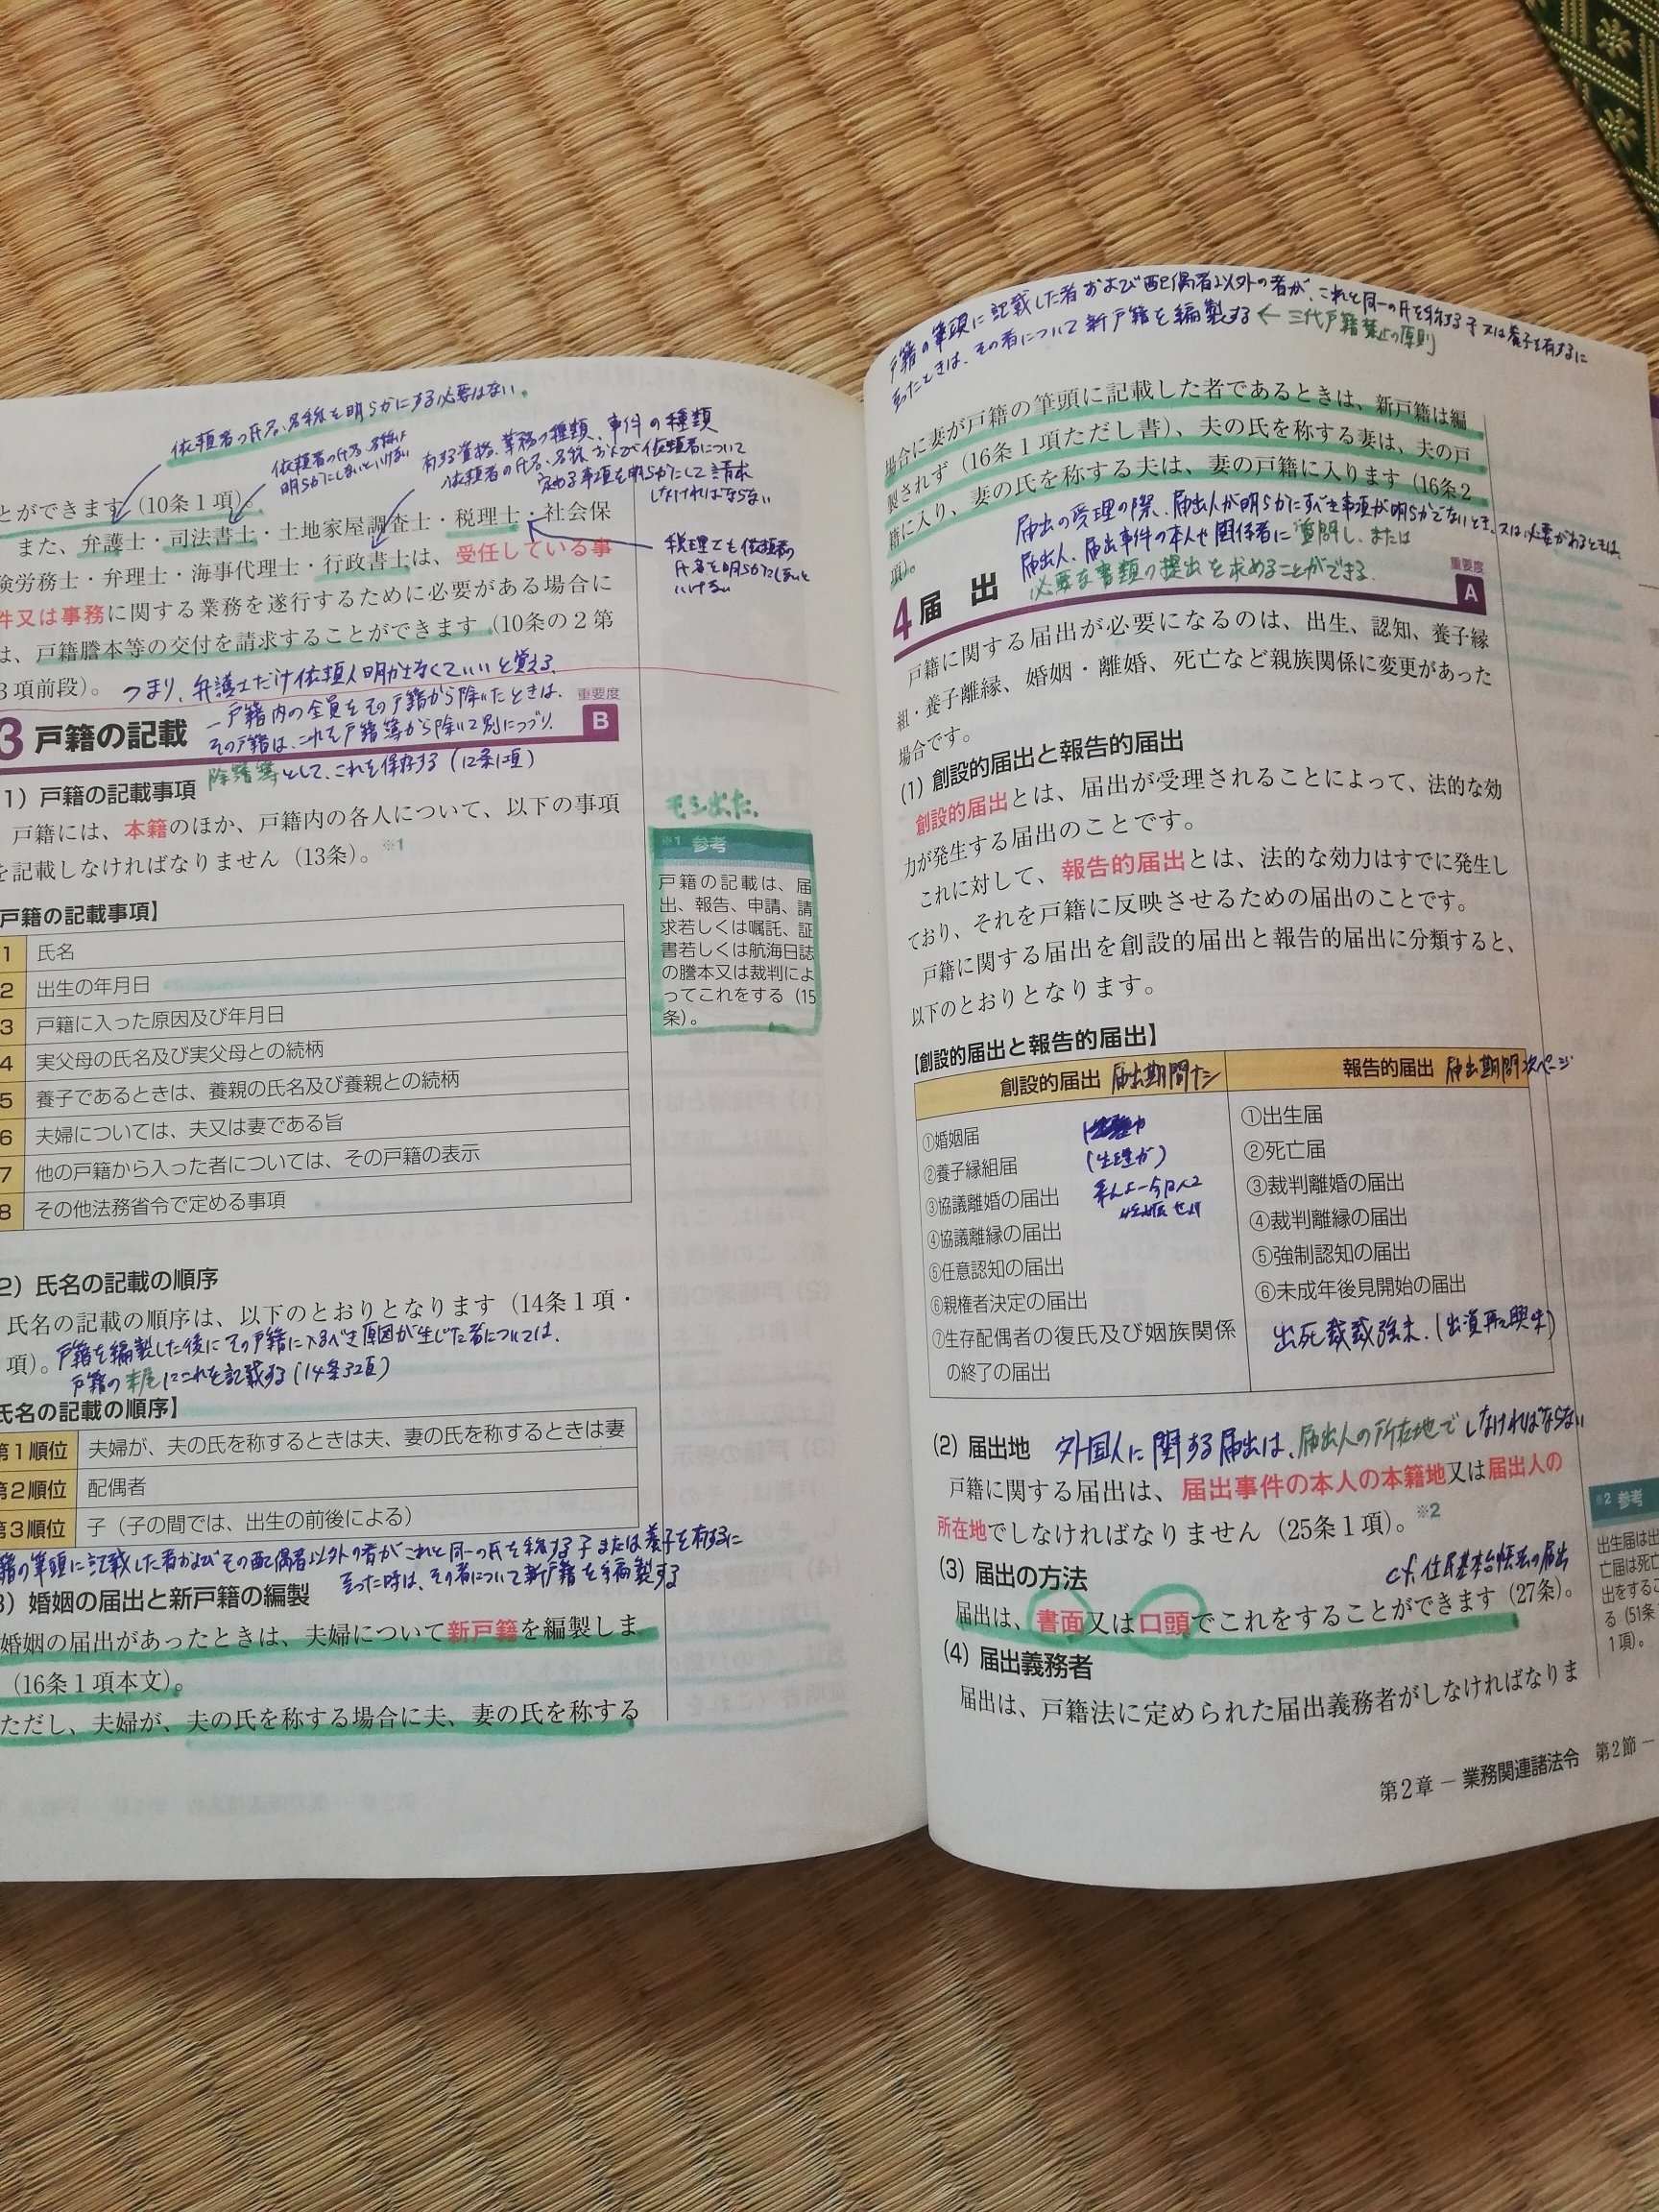 依頼者の氏名、名称を明らかにする必要はない。
依頼者の氏名、名称は
明らかにしないといけない
有する資格、業務の種類、事件の種類
依頼者の氏名、名称 および依頼者について
定める事項を明らかにして請求
しなければならない
とができます(10条1項)。
また、弁護士・司法書士・土地家屋調査士・税理士・社会保
険労務士・弁理士・海事代理士・行政書士は、受任している事
件又は事務に関する業務を遂行するために必要がある場合に
は、戸籍謄本等の交付を請求することができます(10条の2第
3項前段)。
税理士でも依頼者の
氏名を明らかにしないと
いけない
つまり、弁護士だけ依頼人明かさなくていいと覚える
一戸籍内の全員をその戸籍から除いたときは、
その戸籍は、これを戸籍簿から除いて別につづり、
除籍簿として、これを保存する(12条1項)
3 戸籍の記載
重要度
B
1)戸籍の記載事項
戸籍には、本籍のほか、戸籍内の各人について、以下の事項
を記載しなければなりません(13条)。※1
戸籍の記載事項】
1 氏名
2 出生の年月日
3 戸籍に入った原因及び年月日
4 実父母の氏名及び実父母との続柄
5 養子であるときは、養親の氏名及び養親との続柄
6 夫婦については、夫又は妻である旨
7 他の戸籍から入った者については、その戸籍の表示
8 その他法務省令で定める事項
※1 参考
戸籍の記載は、届
出、報告、申請、請
求若しくは嘱託、証
書若しくは航海日誌
の謄本又は裁判によ
ってこれをする(15
条)。
2)氏名の記載の順序
氏名の記載の順序は、以下のとおりとなります(14条1項・
項)。
戸籍を編製した後にその戸籍に入るべき原因が生じた者については、
戸籍の末尾にこれを記載する(14条3項)
氏名の記載の順序】
第1順位 夫婦が、夫の氏を称するときは夫、妻の氏を称するときは妻
第2順位 配偶者
第3順位 子(子の間では、出生の前後による)
籍の筆頭に記載した者およびその配偶者以外の者がこれと同一の氏を称する子または養子を有するに
至った時は、その者について新戸籍を編製する
3)婚姻の届出と新戸籍の編製
婚姻の届出があったときは、夫婦について新戸籍を編製しま
(16条1項本文)。
ただし、夫婦が、夫の氏を称する場合に夫、妻の氏を称する
戸籍の筆頭に記載した者および配偶者以外の者が、これと同一の氏を称する子又は養子を有するに
至ったときは、その者について新戸籍を編製する ← 三代戸籍禁止の原則
場合に妻が戸籍の筆頭に記載した者であるときは、新戸籍は編
製されず(16条1項ただし書)、夫の氏を称する妻は、夫の戸
籍に入り、妻の氏を称する夫は、妻の戸籍に入ります(16条2
項)。
届出の受理の際、届出人が明らかにすべき事項が明らかでないとき、又は必要があるときは、
届出人、届出事件の本人や関係者に質問し、または
必要な書類の提出を求めることができる。
4 届 出
重要度
A
戸籍に関する届出が必要になるのは、出生、認知、養子縁
組・養子離縁、婚姻・離婚、死亡など親族関係に変更があった
場合です。
(1)創設的届出と報告的届出
創設的届出とは、届出が受理されることによって、法的な効
力が発生する届出のことです。
これに対して、報告的届出とは、法的な効力はすでに発生し
ており、それを戸籍に反映させるための届出のことです。
戸籍に関する届出を創設的届出と報告的届出に分類すると、
以下のとおりとなります。
【創設的届出と報告的届出】
創設的届出 届出期間ナシ
①婚姻届
②養子縁組届
③協議離婚の届出
④協議離縁の届出
⑤任意認知の届出
⑥親権者決定の届出
⑦生存配偶者の復氏及び姻族関係
の終了の届出
報告的届出 届出期間次ページ
①出生届
②死亡届
③裁判離婚の届出
④裁判離縁の届出
⑤強制認知の届出
⑥未成年後見開始の届出
出死裁裁強未.
(2)届出地
外国人に関する届出は、届出人の所在地でしなければならない
戸籍に関する届出は、届出事件の本人の本籍地又は届出人の
所在地でしなければなりません(25条1項)。※2
(3)届出の方法
cf.住民基本台帳法の届出
届出は、書面又は口頭でこれをすることができます(27条)。
(4)届出義務者
届出は、戸籍法に定められた届出義務者がしなければなりま
※2 参考
出生届は出
亡届は死亡
出をするこ
る(51条
1項)。
第2章 − 業務関連諸法令 第2節 −